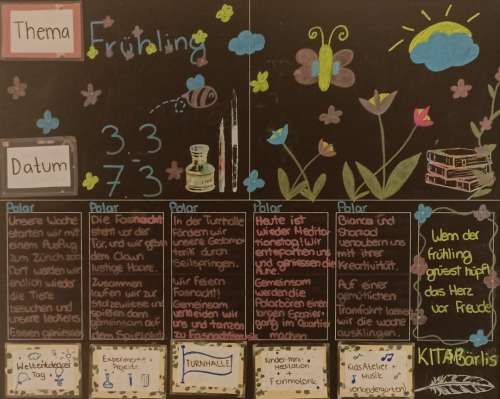 Thema
Frühling
Datum
3.3
7.3
Polar
Unsere Woche
starten wir mit
einem Ausflug
zum Zürich zoo
Dort werden wir
endlich wieder
die Tiere
besuchen und
unsere leckeres
Essen geniessen
Polar
Die Fasnacht
steht vor der
Tür, und wir geben
dem Clown
lustige Haare.
Zusammen
laufen wir zur
Stolzewiese und
spielen dort
gemeinsam auf
dem Spielplatz
Polar
In der Turnhalle
fördern wir
unsere Gedomo-
torik durch
Seilspringen.
Wir feiern
Fasnacht!
Gemeinsam
verkleiden wir
uns und tanzen
zu Fasnachtmusik
Polar
Heute ist
wieder Medita-
tionstag! Wir
entspannen uns
und geniessen die
Ruhe.
Gemeinsam
werden die
Polarbären einen
langen Spazier-
gang im Quartier
machen
Polar
Bianca und
Sharrod
verzaubern uns
mit ihrer
Kreativität.
Auf einer
gemütlichen
Tramfahrt lassen
wir die Woche
ausklingen.
Wenn der
Frühling
grüsst hüpft
das Herz
vor Freude
Weltentdecker
Tag
Experiment +
Projekte
TURNHALLE
Kinder-mini
Meditation
+
Feinmotorik
KidsAtelier +
Musik
(Kindergarten)
KITA Bärlis